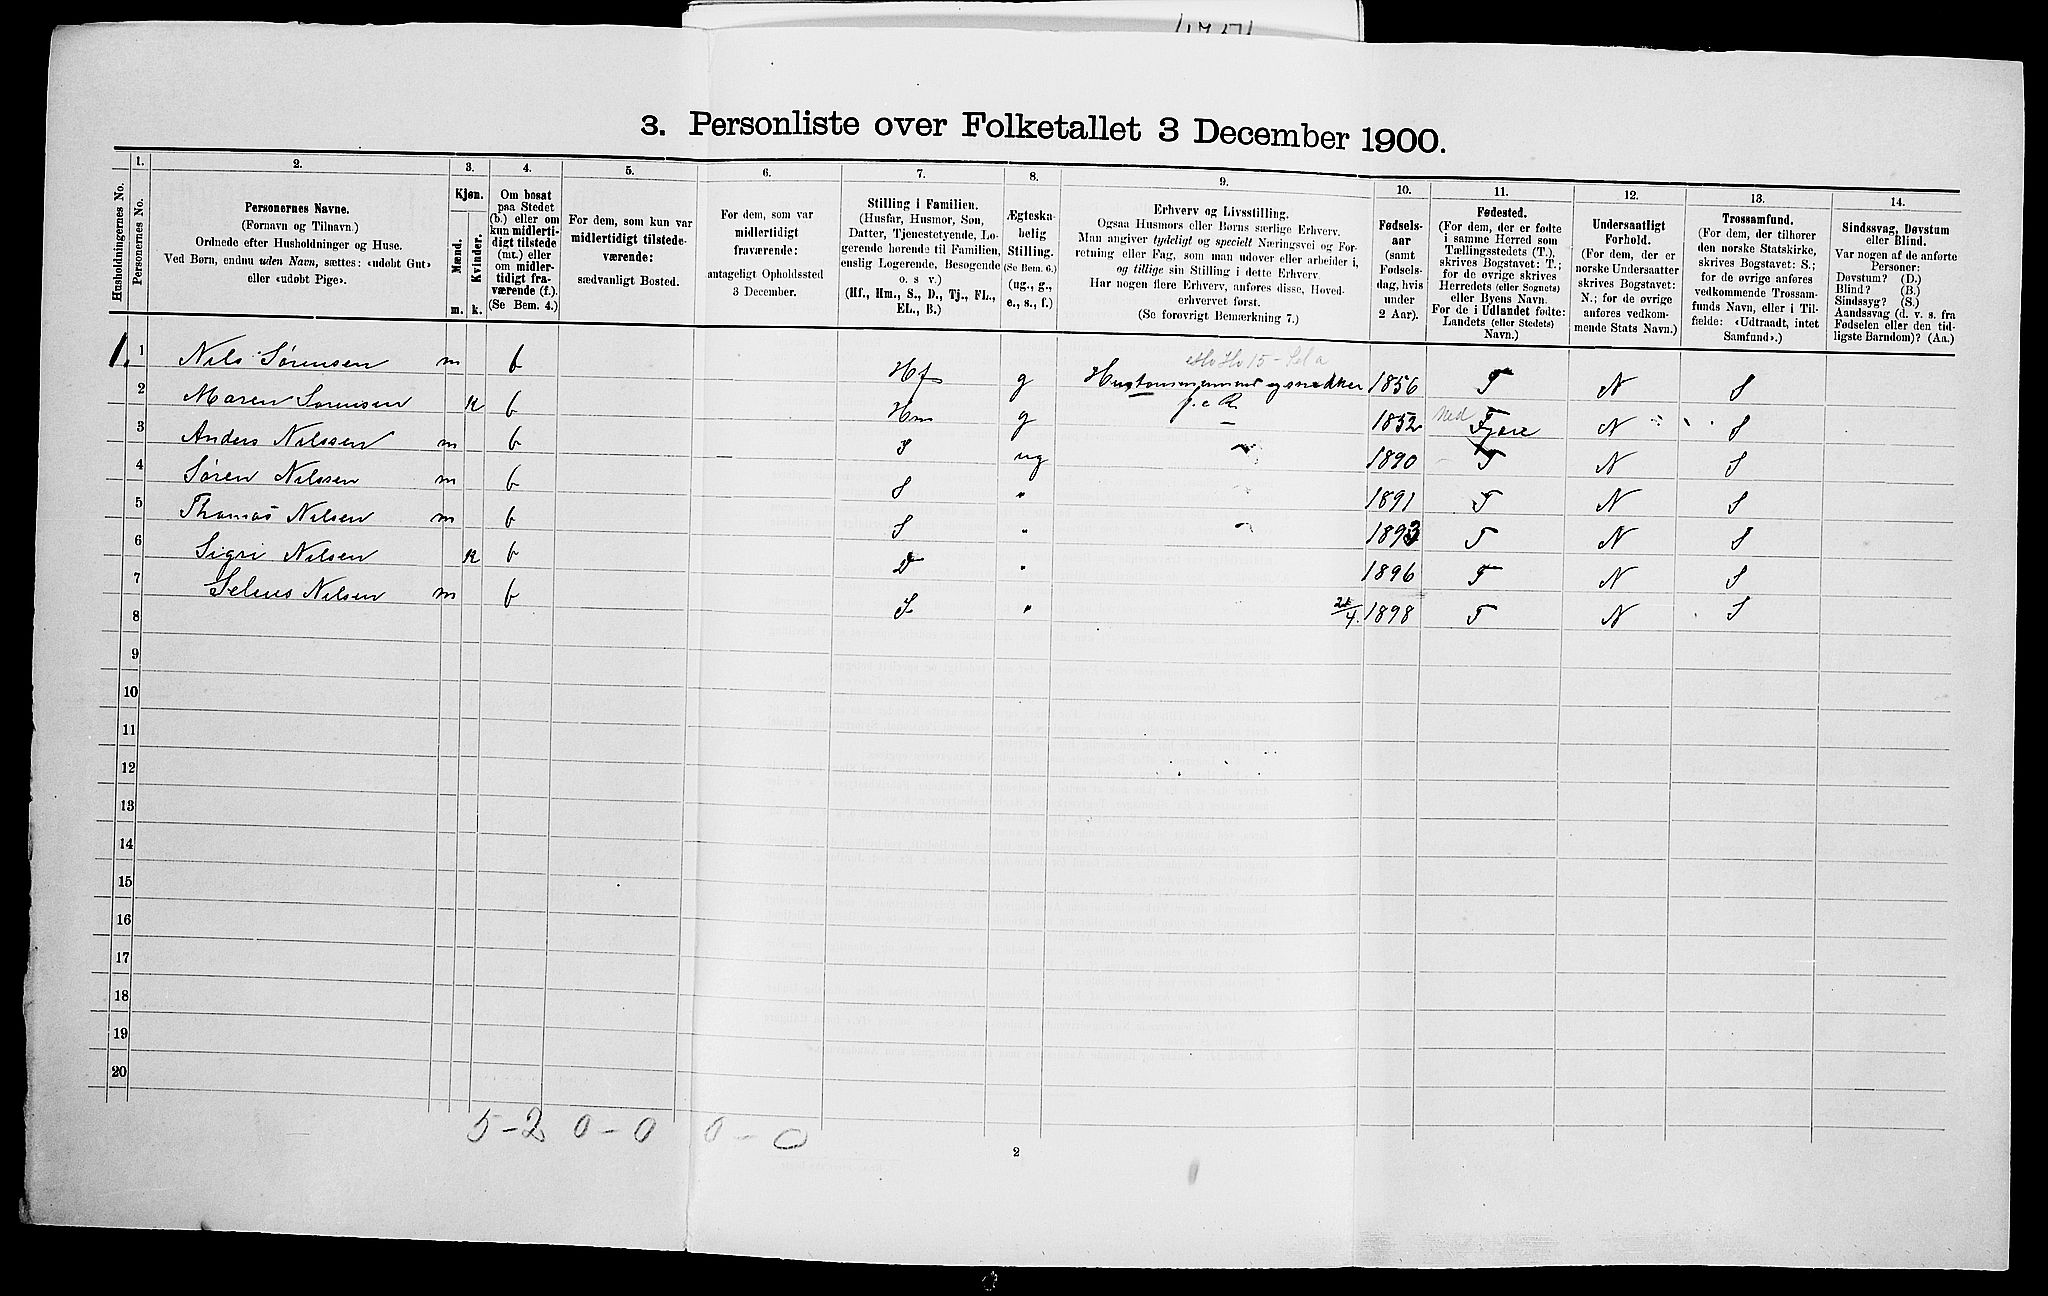 3. Personliste over Folketallet 3 December 1900.
Husholdningernes No.
1.
Personernes No.
2.
Personernes Navne.
(Fornavn og Tilnavn.)
Ordnede efter Husholdninger og Huse.
Ved Børn, endnu uden Navn, sættes: «udøbt Gut»
eller «udøbt Pige».
3.
Kjøn.
Mænd.
Kvinder.
m.
k.
4.
Om bosat
paa Stedet
(b.) eller om
kun midlerti-
digt tilstede
(mt.) eller
om midler-
tidigt fra-
værende (f.).
(Se Bem. 4.)
5.
For dem, som kun var
midlertidigt tilstede-
værende:
sædvanligt Bosted.
6.
For dem, som var
midlertidigt
fraværende:
antageligt Opholdssted
3 December.
7.
Stilling i Familien.
(Husfar, Husmor, Søn,
Datter, Tjenestetyende, Lo-
gerende hørende til Familien,
enslig Logerende, Besøgende
o. s v.)
(Hf., Hm., S., D., Tj., FL.,
EL., B.)
8.
Ægteska-
belig
Stilling.
(Se Bem. 6.)
(ug., g.,
e., s., f.)
9.
Erhverv og Livsstilling.
Ogsaa Husmors eller Børns særlige Erhverv.
Man angiver tydeligt og specielt Næringsvei og For-
retning eller Fag, som man udøver eller arbeider i,
og tillige sin Stilling i dette Erhverv.
Har nogen flere Erhverv, anføres disse, Hoved-
erhvervet først.
(Se forøvrigt Bemærkning 7.)
10.
Fødsels-
aar
(samt
Fødsels-
dag, hvis
under
2 Aar).
11.
Fødested.
(For dem, der er fødte
i samme Herred som
Tællingsstedets (T.),
skrives Bogstavet: T.;
for de øvrige skrives
Herredets (eller Sognets)
eller Byens Navn.
For de i Udlandet fødte:
Landets (eller Stedets)
Navn.)
12.
Undersaatligt
Forhold.
(For dem, der er
norske Undersaatter
skrives Bogstavet:
N.; for de øvrige
anføres vedkom-
mende Stats Navn.)
13.
Trossamfund.
(For dem, der tilhører
den norske Statskirke,
skrives Bogstavet: S.;
for de øvrige anføres
vedkommende Trossam-
funds Navn, eller i Til-
fælde: «Udtraadt, intet
Samfund».)
14.
Sindssvag, Døvstum
eller Blind.
Var nogen af de anførte
Personer:
Døvstum? (D.)
Blind? (B.)
Sindssyg? (S.)
Aandssvag (d. v. s. fra
Fødselen eller den tid-
ligste Barndom)? (Aa.)
1. 1 Nils Sørensen m b Hf g 1856 T N S
2 Maren Sørensen K b Hm g 1852 Fjære N S
3 Anders Nilssen m b S ug 1890 T N S
4 Søren Nilssen m b S " 1891 T N S
5 Thomas Nilsen m b S " 1893 T N S
6 Sigri Nilsen K b D " 1896 T N S
7 Selius Nilsen m b S " 21/4. 1898 T N S
8
9
10
11
12
13
14
15
16
17
18
19
20
5-2 0-0 0-0
2